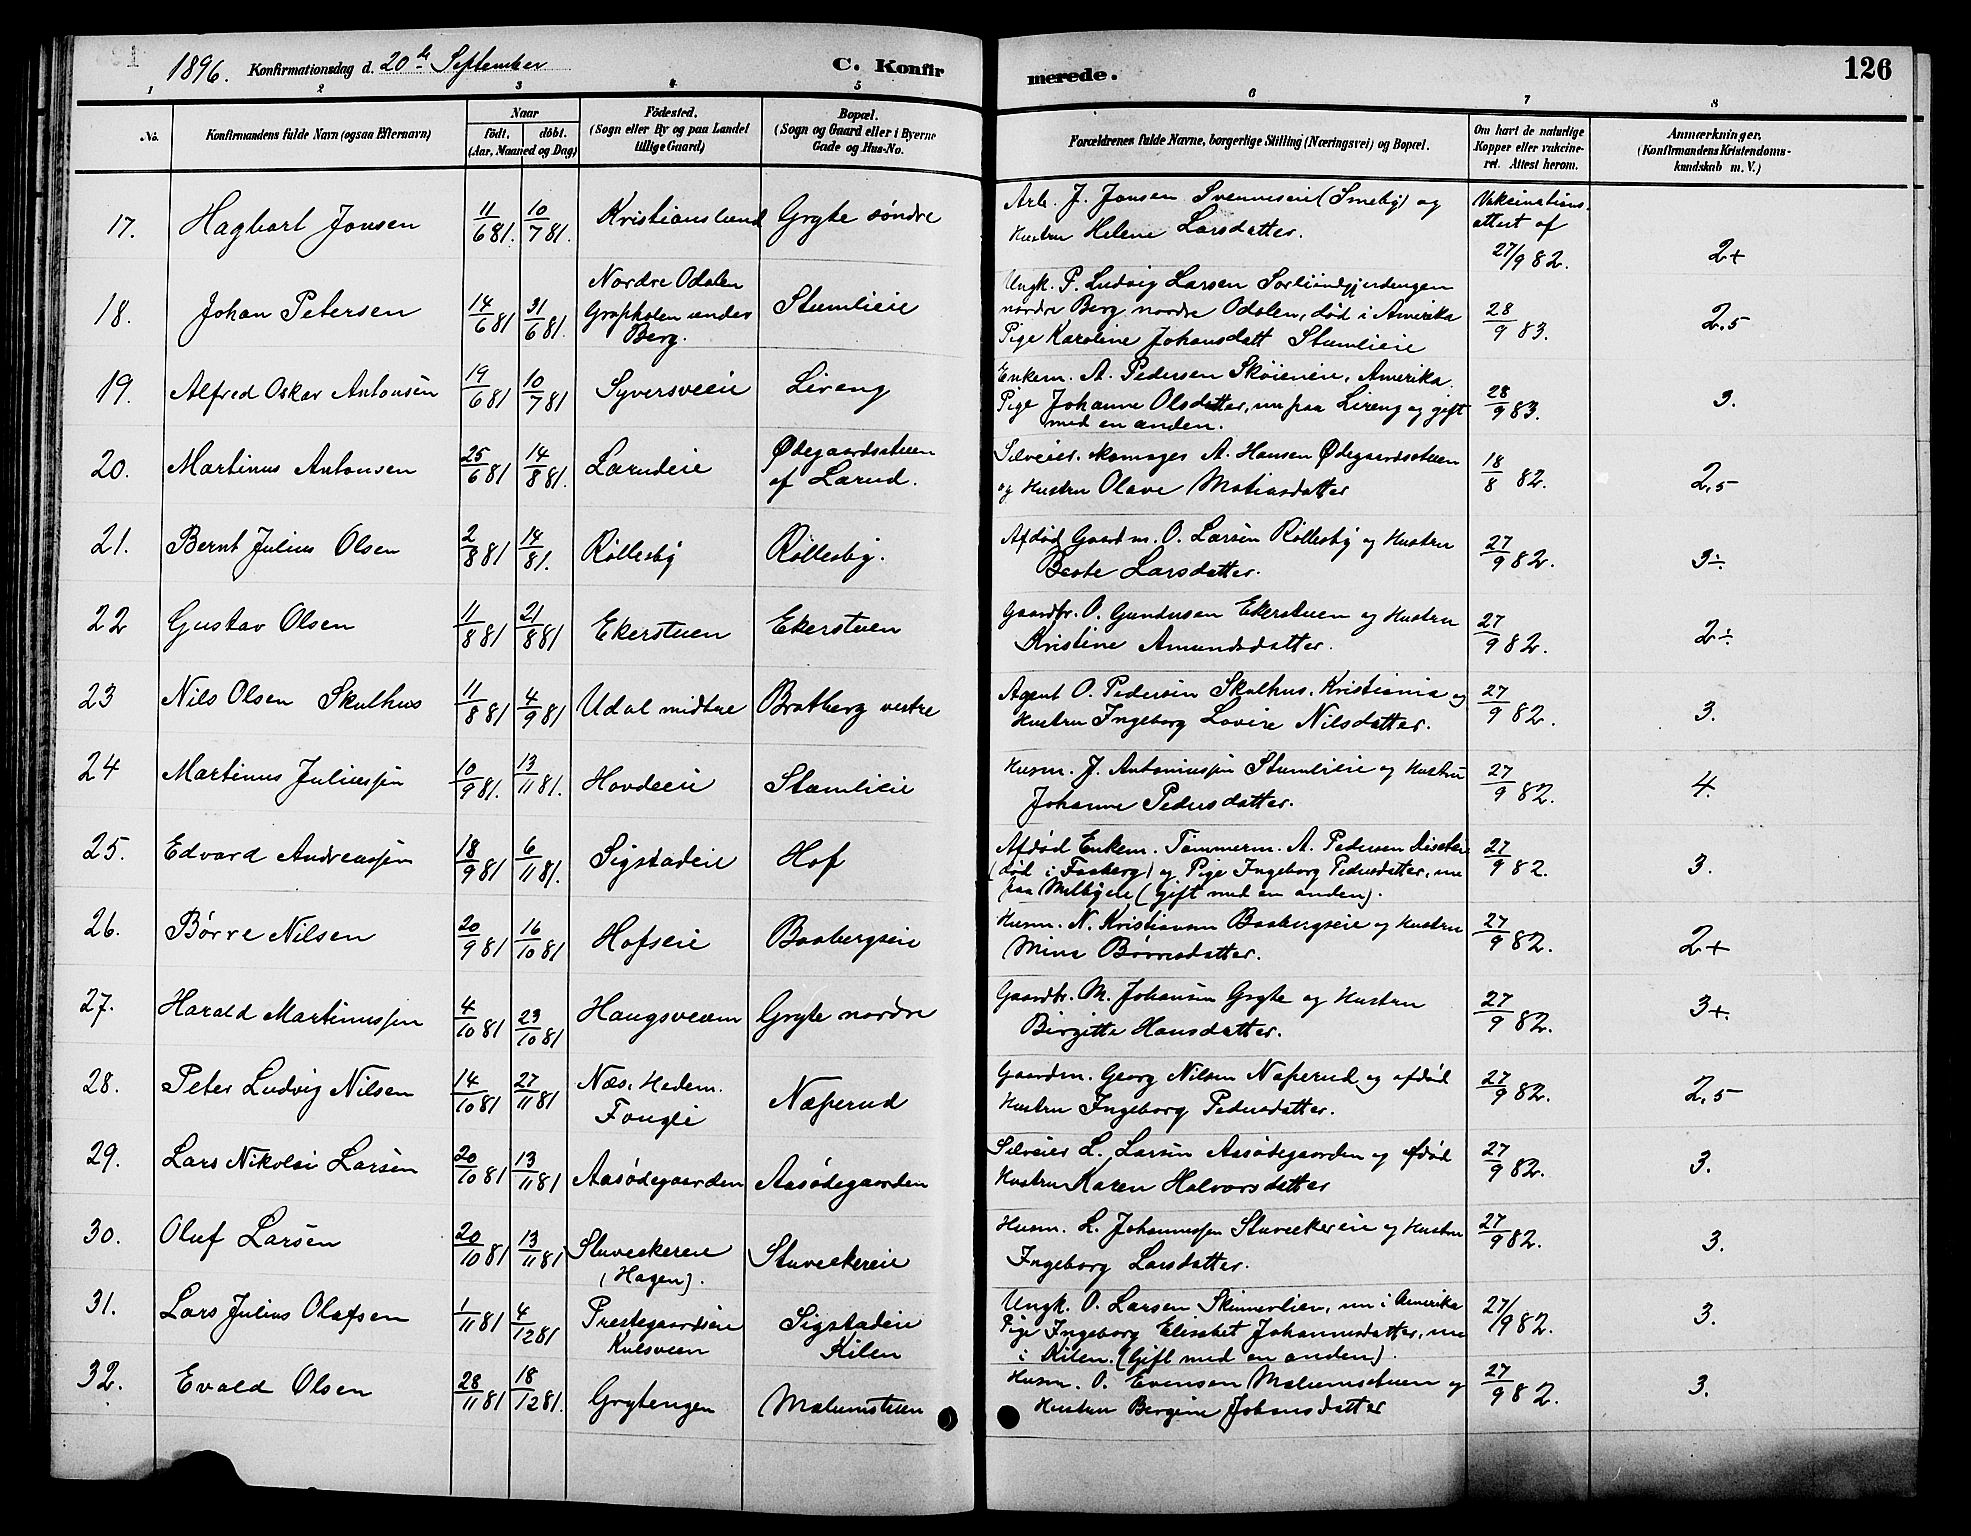 1896. Konfirmationsdag d. 20de September C. Konfirmerede. 126
1 2 3 4 5 6 7 8
No. Konfirmandens fulde Navn (ogsaa Efternavn) Naar født. døbt. (Aar, Maaned og Dag) Födested. (Sogn eller By og paa Landet tillige Gaard) Bopæl. (Sogn og Gaard eller i Byerne Gade og Hus-No. Forældrenes fulde Navne, borgerlige Stilling (Næringsvei) og Bopæl. Om havt de naturlige Kopper eller vakcineret. Attest herom. Anmærkninger, (Konfirmandens Kristendomskundskab m. V.)
17. Hagbart Jonsen 11/6 81. 10/7 81. Kristianslund Gryte söndre Arb. J. Jonsen Svenneseie (Smeby) og Vakcinations-
Hustru Helene Larsdatter. attest af 27/9 82. 2+
18. Johan Petersen 14/6 81 31/6 81. Nordre Odalen Grapholen under Berg. Stumlieie Ungk. P. Ludvig Larsen
nordre Berg nordre Odalen, død i Amerika 28/9 83. 2,5
Pige Karoline Johansdatt Stumlieie
19. Alfred Oskar Antonsen 19/6 81 10/7 81 Syversveie Lireng Enkem. A. Pedersen Skøieneie, Amerika.
Pige Johanne Olsdatter, nu paa Lireng og gift 28/9 83. 3.
med en anden.
20. Martinus Antonsen 25/6 81 14/8 81. Larudeie Ødegaardsstuen af Larud. Selveier. skomager A. Hansen Ødegaardsstuen
og Hustru Olave Matiasdatter 18/8 82. 2,5
21. Bernt Julius Olsen 2/8 81 14/81. Röllesby Röllesby. Afdød Gaardm. O. Larsen Röllesby og Hustru
Beate Larsdatter. 27/9 82. 3÷.
22 Gustav Olsen 11/8 81 21/8 81 Ekerstuen Ekerstuen Gaardbr. O. Gundersen Ekerstuen og Hustru
Kristine Amundsdatter. 27/9 82. 2÷
23 Nils Olsen Skulhus 11/8 81 4/9 81 Udal midtre Bratberg vestre Agent O. Pedersen Skulhus. Kristiania og
Hustru Ingeborg Lovise Nilsdatter. 27/9 82. 3.
24 Martinus Juliussen 10/9 81. 13/11 81. Hovdeeie Stumlieie Husm. J. Antoniussen Stumlieie og Hustru
Johanne Pedersdatter. 27/9 82. 4.
25. Edvard Andreassen 18/9 81 6/11 81. Sigstadeie Hof Afdød Enkem. Tømmerm. A. Pedersen
(død i Faaberg) og Pige Ingeborg Pedersdatter, nu 27/9 82. 3.
paa Melbyeie (gift med en anden).
26. Børre Nilsen 20/9 81 16/10 81 Hofseie Baabergseie Husm. N. Kristiansen Baabergseie og Hustru
Mina Børresdatter. 27/9 82. 2+
27. Harald Martinussen 4/10 81 23/10 81 Haugsveen Gryte nordre Gaardbr. M. Johansen Gryte og Hustru
Birgitte Hansdatter. 27/9 82. 3+.
28. Peter Ludvig Nilsen 14/10 81 27/11 81 Næs. Hedem. Fougli Næperud Gaardm. Georg Nilsen Næperud og afdød
Hustru Ingeborg Pedersdatter. 27/9 82. 2,5
29. Lars Nikolai Larsen 20/10 81 13/11 81 Aasødegaarden Aasødegaarden Selveier L. Larsen Aasødegaarden og afdød
Hustru Karen Halvorsdatter 27/9 82. 3.
30. Oluf Larsen 20/10 81 13/11 81 Stuveekereie (Hagen). Stuveekereie Husm. L. Johannessen Stuveekereie og Hustru
Ingeborg Larsdatter. 27/9 82. 3.
31. Lars Julius Olafsen 1/11 81 4/12 81 Prestegaardseie Kulsveen Sigstadeie Kilen Ungk. O. Larsen Skinnerlien, nu i Amerika
Pige Ingeborg Elisabet Johannesdatter, nu 27/9 82. 3.
i Kilen. (Gift med en anden).
32. Evald Olsen 28/11 81 18/12 81. Grytengen Malumstuen Husm. O. Evensen Malumstuen og
Hustru Bergine Johansdatter 27/9 82. 3.